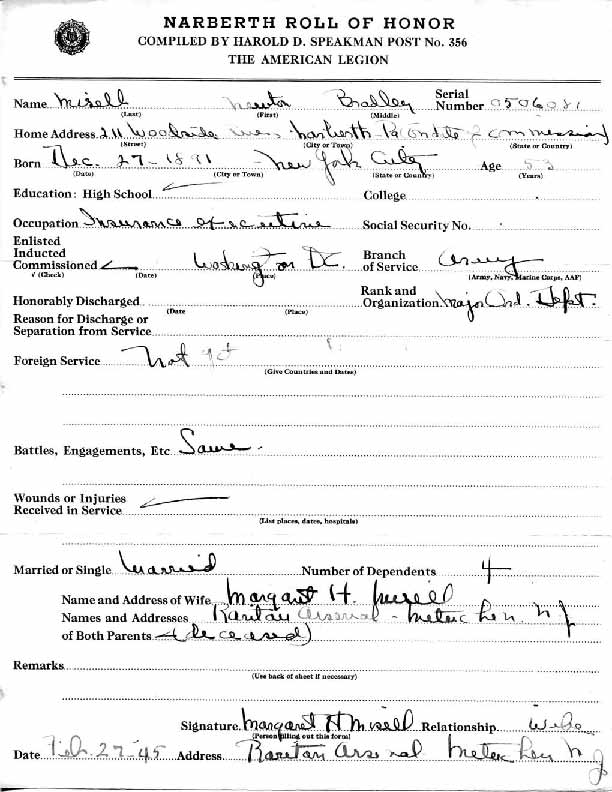 NARBERTH ROLL OF HONOR
COMPILED BY HAROLD D. SPEAKMAN POST No. 356
THE AMERICAN LEGION
Name Misell Newton Bradley Serial Number 0506081
(Last) (First) (Middle)
Home Address 211 Woodside Narberth Pa on date of commission
(Street) (City or Town) (State or Country)
Born Dec. 27-1891 - New York City Age 53
(Date) (City or Town) (State or Country) (Years)
Education: High School College
Occupation Insurance Social Security No.
Enlisted
Inducted
Commissioned Washington D.C. Branch of Service Army
√ (Check) (Date) (Place) (Army, Navy, Marine Corps, AAF)
Honorably Discharged Rank and Organization Major Ord. Dept.
(Date (Place)
Reason for Discharge or
Separation from Service
Foreign Service Not yet
(Give Countries and Dates)
Battles, Engagements, Etc Same.
Wounds or Injuries
Received in Service
(List places, dates, hospitals)
Married or Single Married Number of Dependents 4
Name and Address of Wife Margaret H. Misell
Names and Addresses Raritan Arsenal - Metuchen N J
of Both Parents (deceased)
Remarks
(Use back of sheet if necessary)
Signature Margaret H Misell Relationship Wife
(Person filling out this form)
Date Feb. 27-45 Address Raritan Arsenal Metuchen N J